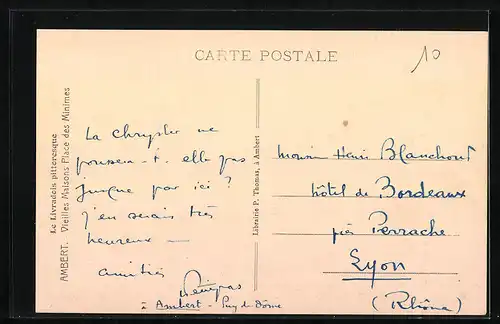 CARTE POSTALE
10
Le Livradois pittoresque
AMBERT. Vieilles Maisons Place des Minimes
La Chrysler ne
poussera-t-elle pas
jusque par ici ?
j'en serais très
heureux —
amitiés
Ambert - Puy de Dôme
Librairie P. Thomas, à Ambert
Monsieur Henri Blanchout
hôtel de Bordeaux
près Perrache
Lyon
(Rhône)